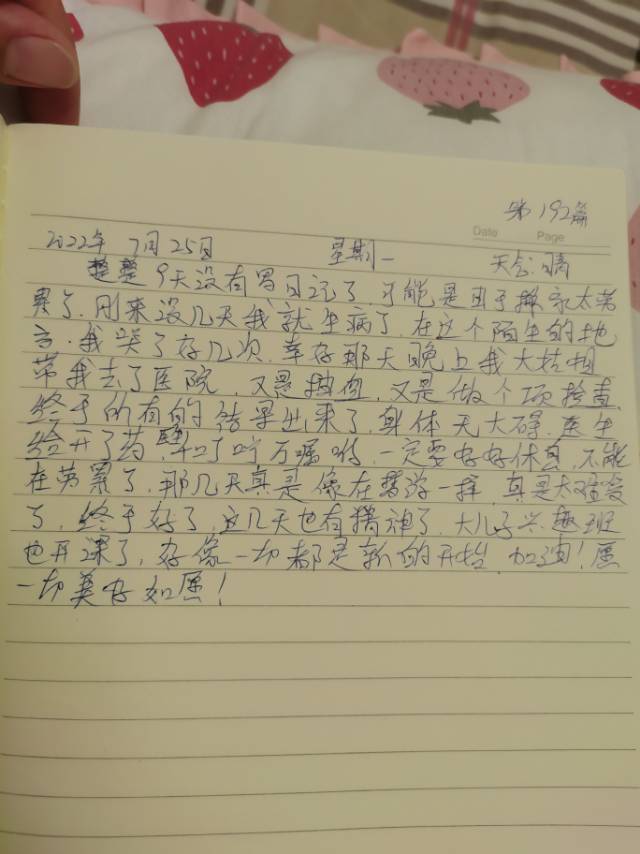 第192篇
Date Page
2022年 7月25日 星期一 天气:晴
整整9天没有写日记了,可能是由于搬家太劳
累了,刚来没几天我就生病了,在这个陌生的地
方.我哭了好几次,幸好那天晚上我大姑姐
带我去了医院,又是抽血,又是做个项检查,
终于所有的结果出来了,身体无大碍,医生
给开了药,千叮万嘱咐,一定要好好休息,不能
在劳累了,那几天真是像在梦游一样,真是太难受
了,终于好了,这几天也有精神了,大儿子兴趣班
也开课了,好像一切都是新的开始,加油!愿
一切美好如愿!